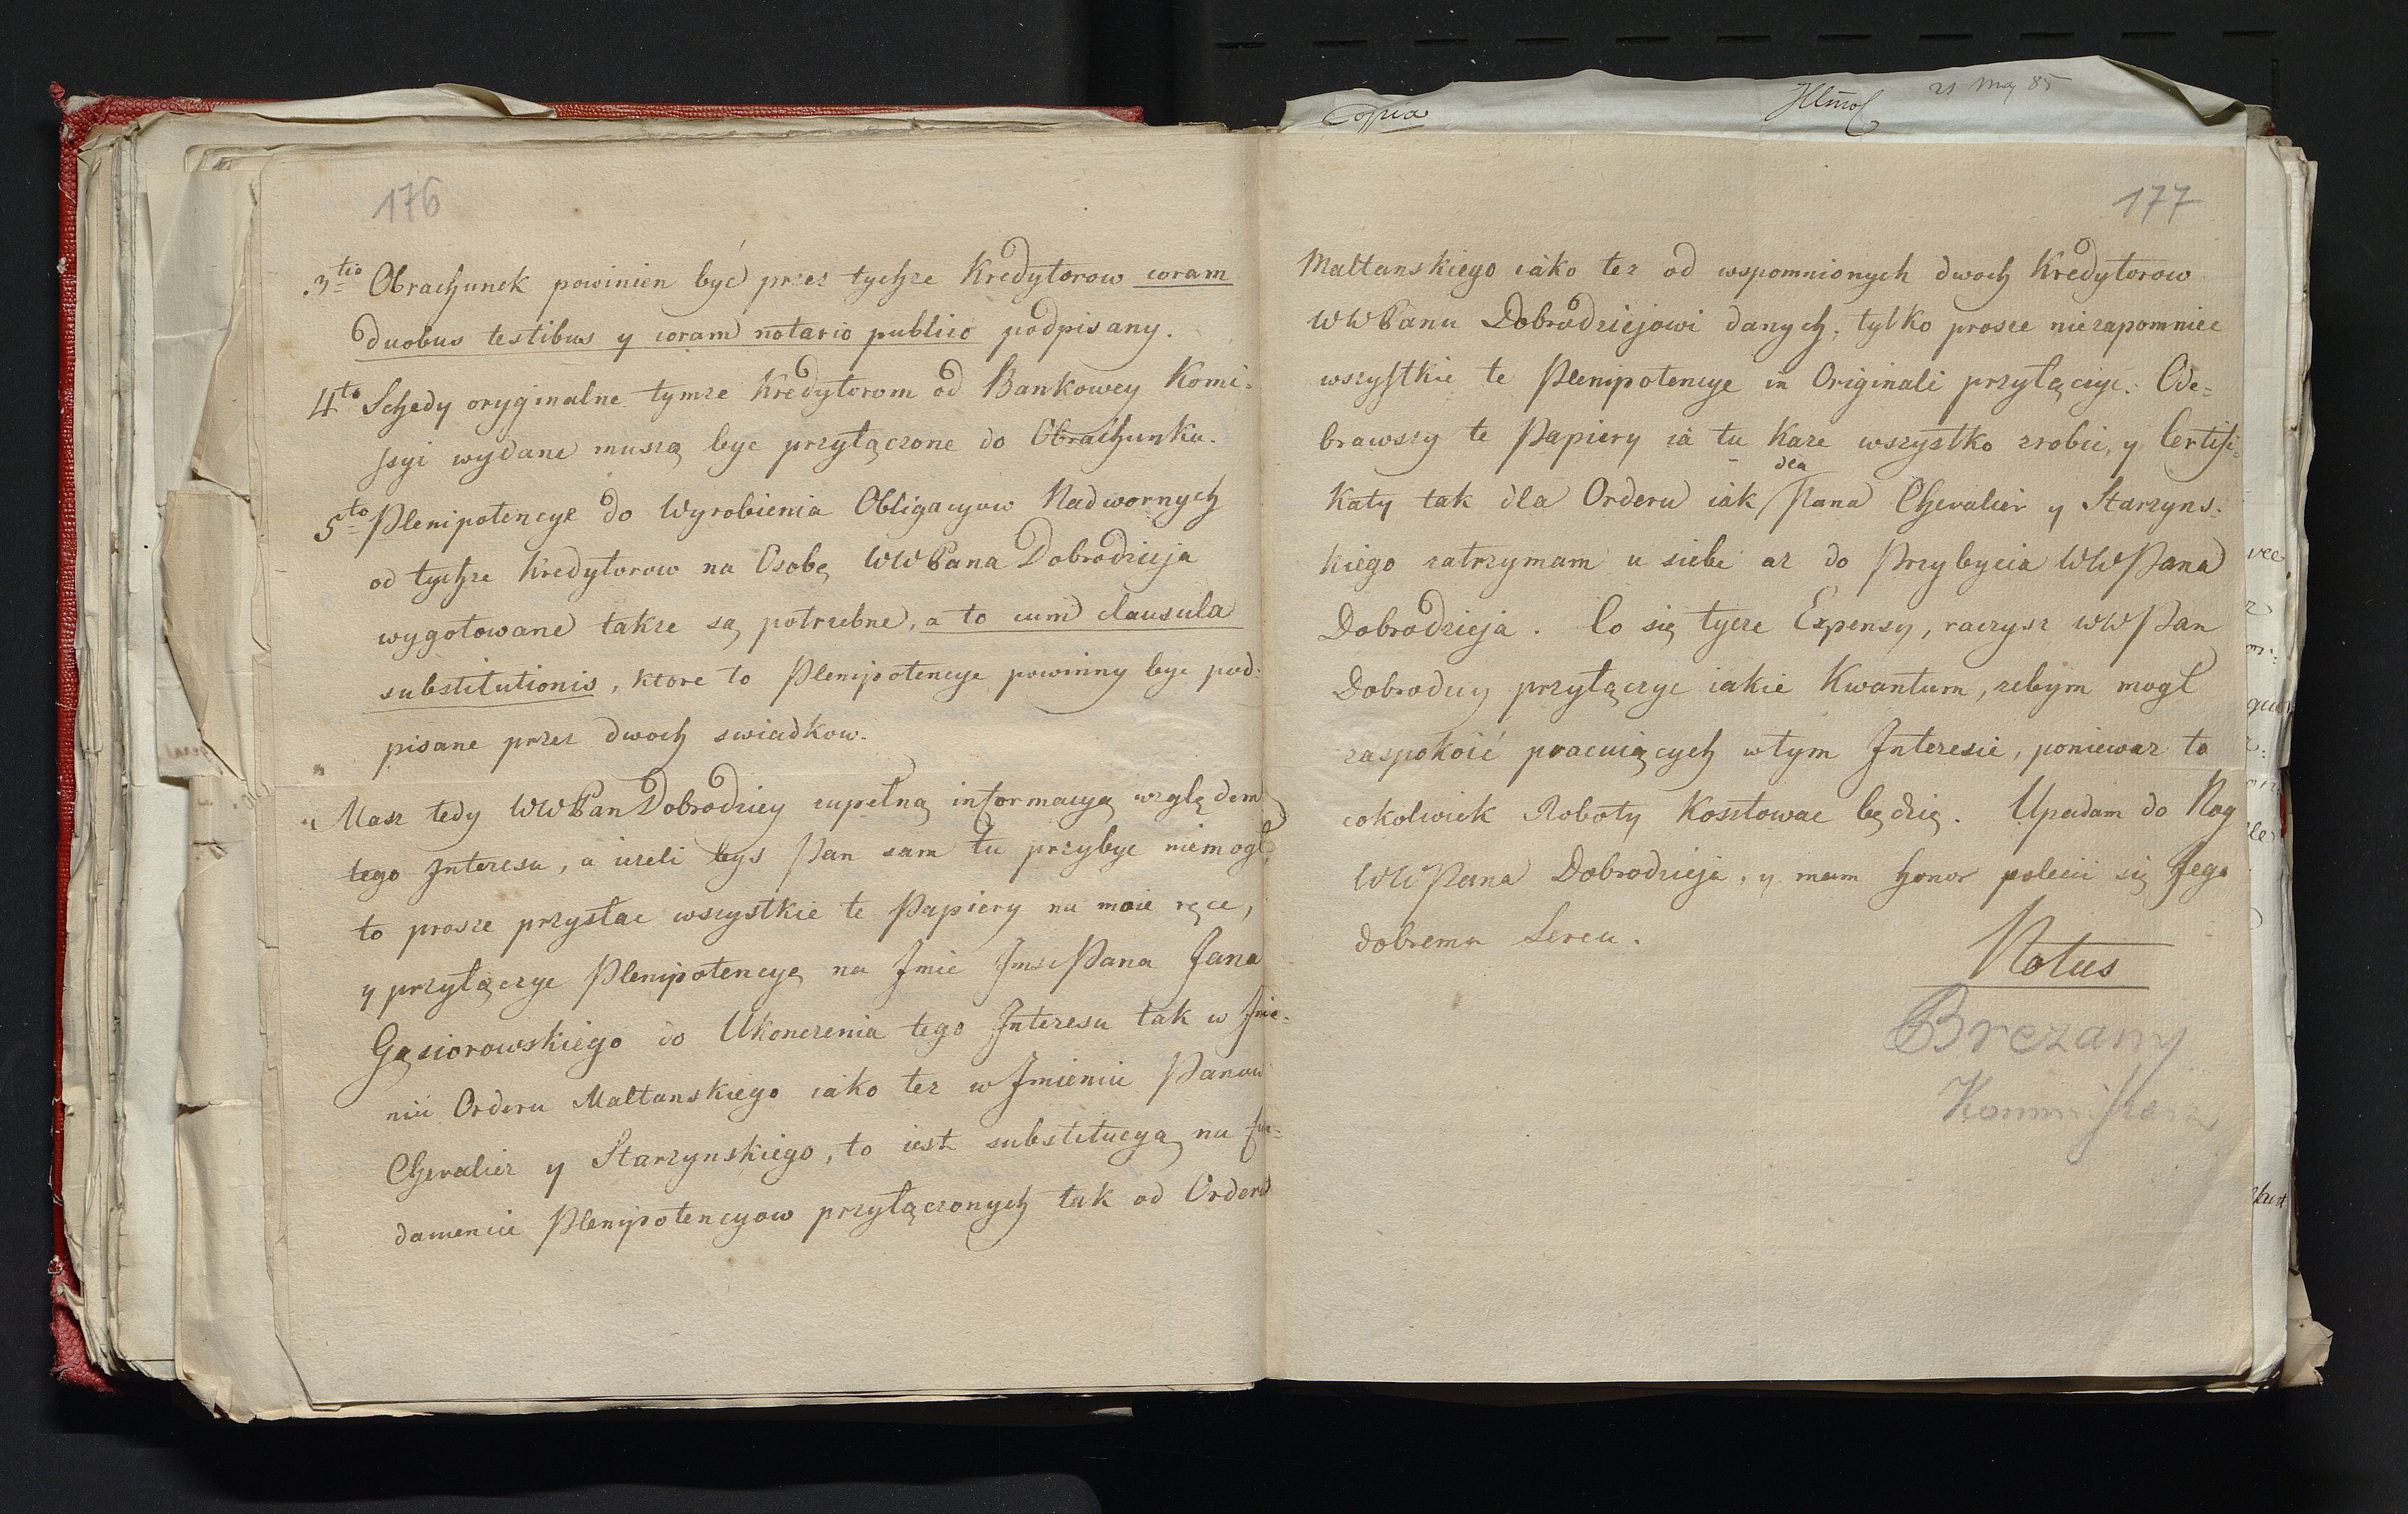 176
3tio Obrachunek powinien być przez tychze Kredytorow coram
duobus testibus y coram notario publico podpisany.
4to Schedy oryginalne tymze Kredytorom od Bankowey Komi=
ssyi wydane muszą byc przyłączone do Obrachunku.
5to Plenipotencye do Wyrobienia Obligacyow Nadwornych
od tychze Kredytorow na Osobę WWPana Dobrodzieja
wygotowane takze są potrzebne, a to cum clausula
substitutionis, ktore to Plenipotencye powinny byc pod=
pisane przez dwoch swiadkow.
Masz tedy WWPan Dobrodziey zupełną informacyą względem
tego Interesu, a iezeli bys Pan sam tu przybyc niemogł,
to prosze przysłac wszystkie te Papiery na moie ręce,
y przyłączyc Plenipotencyę na Imie ImsciPana Jana
Gąsiorowskiego do Ukonczenia tego Interesu tak w Imie=
niu Orderu Maltanskiego iako tez w Imieniu Panow
Chevalier y Starzynskiego, to iest substitucyą na Fun=
damencie Plenipotencyow przyłączonych tak od Orderu
Copia
21 May 85
177
Maltanskiego iako tez od wspomnionych dwoch Kredytorow
WWPanu Dobrodziejowi danych; tylko prosze niezapomniec
wszystkie te Plenipotencye in Originali przyłączyc. Ode=
brawszy te Papiery ia tu Kaze wszystko zrobic, y Certifi=
Katy tak dla Orderu iak dla Pana Chevalier y Starzyns=
kiego zatrzymam u siebie az do Przybycia WWPana
Dobrodzieja. Co się tycze Expensy, raczysz WWPan
Dobrodziey przyłączyc iakie Kwantum, zebym mogł
zaspokoić pracuiących w tym Interesie, poniewaz to
cokolwiek Roboty Kosztowac będzie. Upadam do Nog
WWPana Dobrodzieja, y mam honor polecic się Jego
dobremu Sercu.
Notus
Brezany